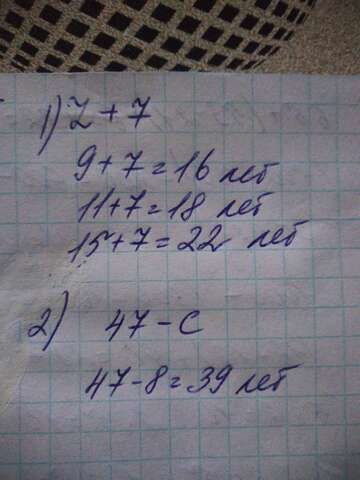 1) z + 7
9 + 7 = 16 лет
11 + 7 = 18 лет
15 + 7 = 22 лет
2) 47 - c
47 - 8 = 39 лет